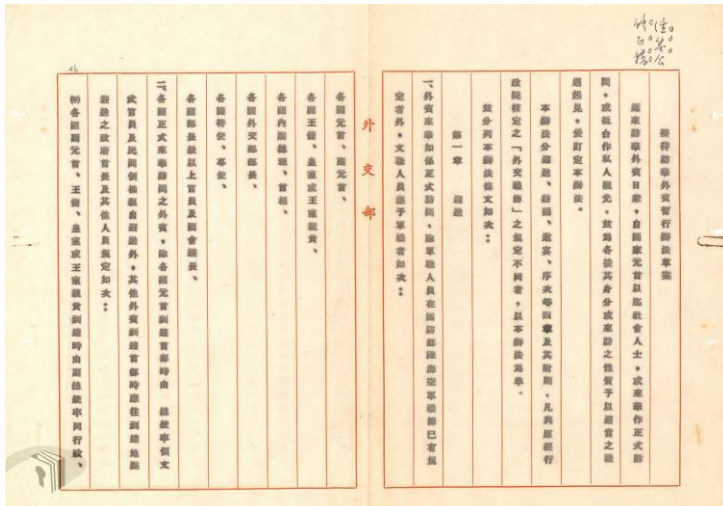 接待訪華外賓暫行辦法草案
邇來訪華外賓日衆,自國家元首以迄社會人士,或來華作正式訪
問,或抵台作私人觀光,茲爲各按其身分或來訪之性質予以適當之禮
遇起見,爰訂定本辦法。
本辦法分迎送、訪謁、邀宴、序次等四章及其附則,凡與原經行
政院核定之「外交禮節」之規定不同者,以本辦法爲準。
茲分列本辦法條文如次:
第一章 迎送
一、外賓來華如係正式訪問,除軍職人員在國防部陸海空軍禮節已有規
定者外,文職人員應予軍禮者如次:
外交部
各國元首、副元首、
各國王儲、皇室或王室親貴、
各國內閣總理、首相、
各國外交部部長、
各國特使、專使、
各國部長級以上官員及國會議長、
二、各國正式來華訪問之外賓,除各國元首到達首都時由 總統率領文
武官員及民間領袖親自迎送外,其他外賓到達首都時應往到達地點
迎送之政府首長及其他人員規定如次:
㈠各國副元首、王儲、皇室或王室親貴到達時由副總統率同行政、